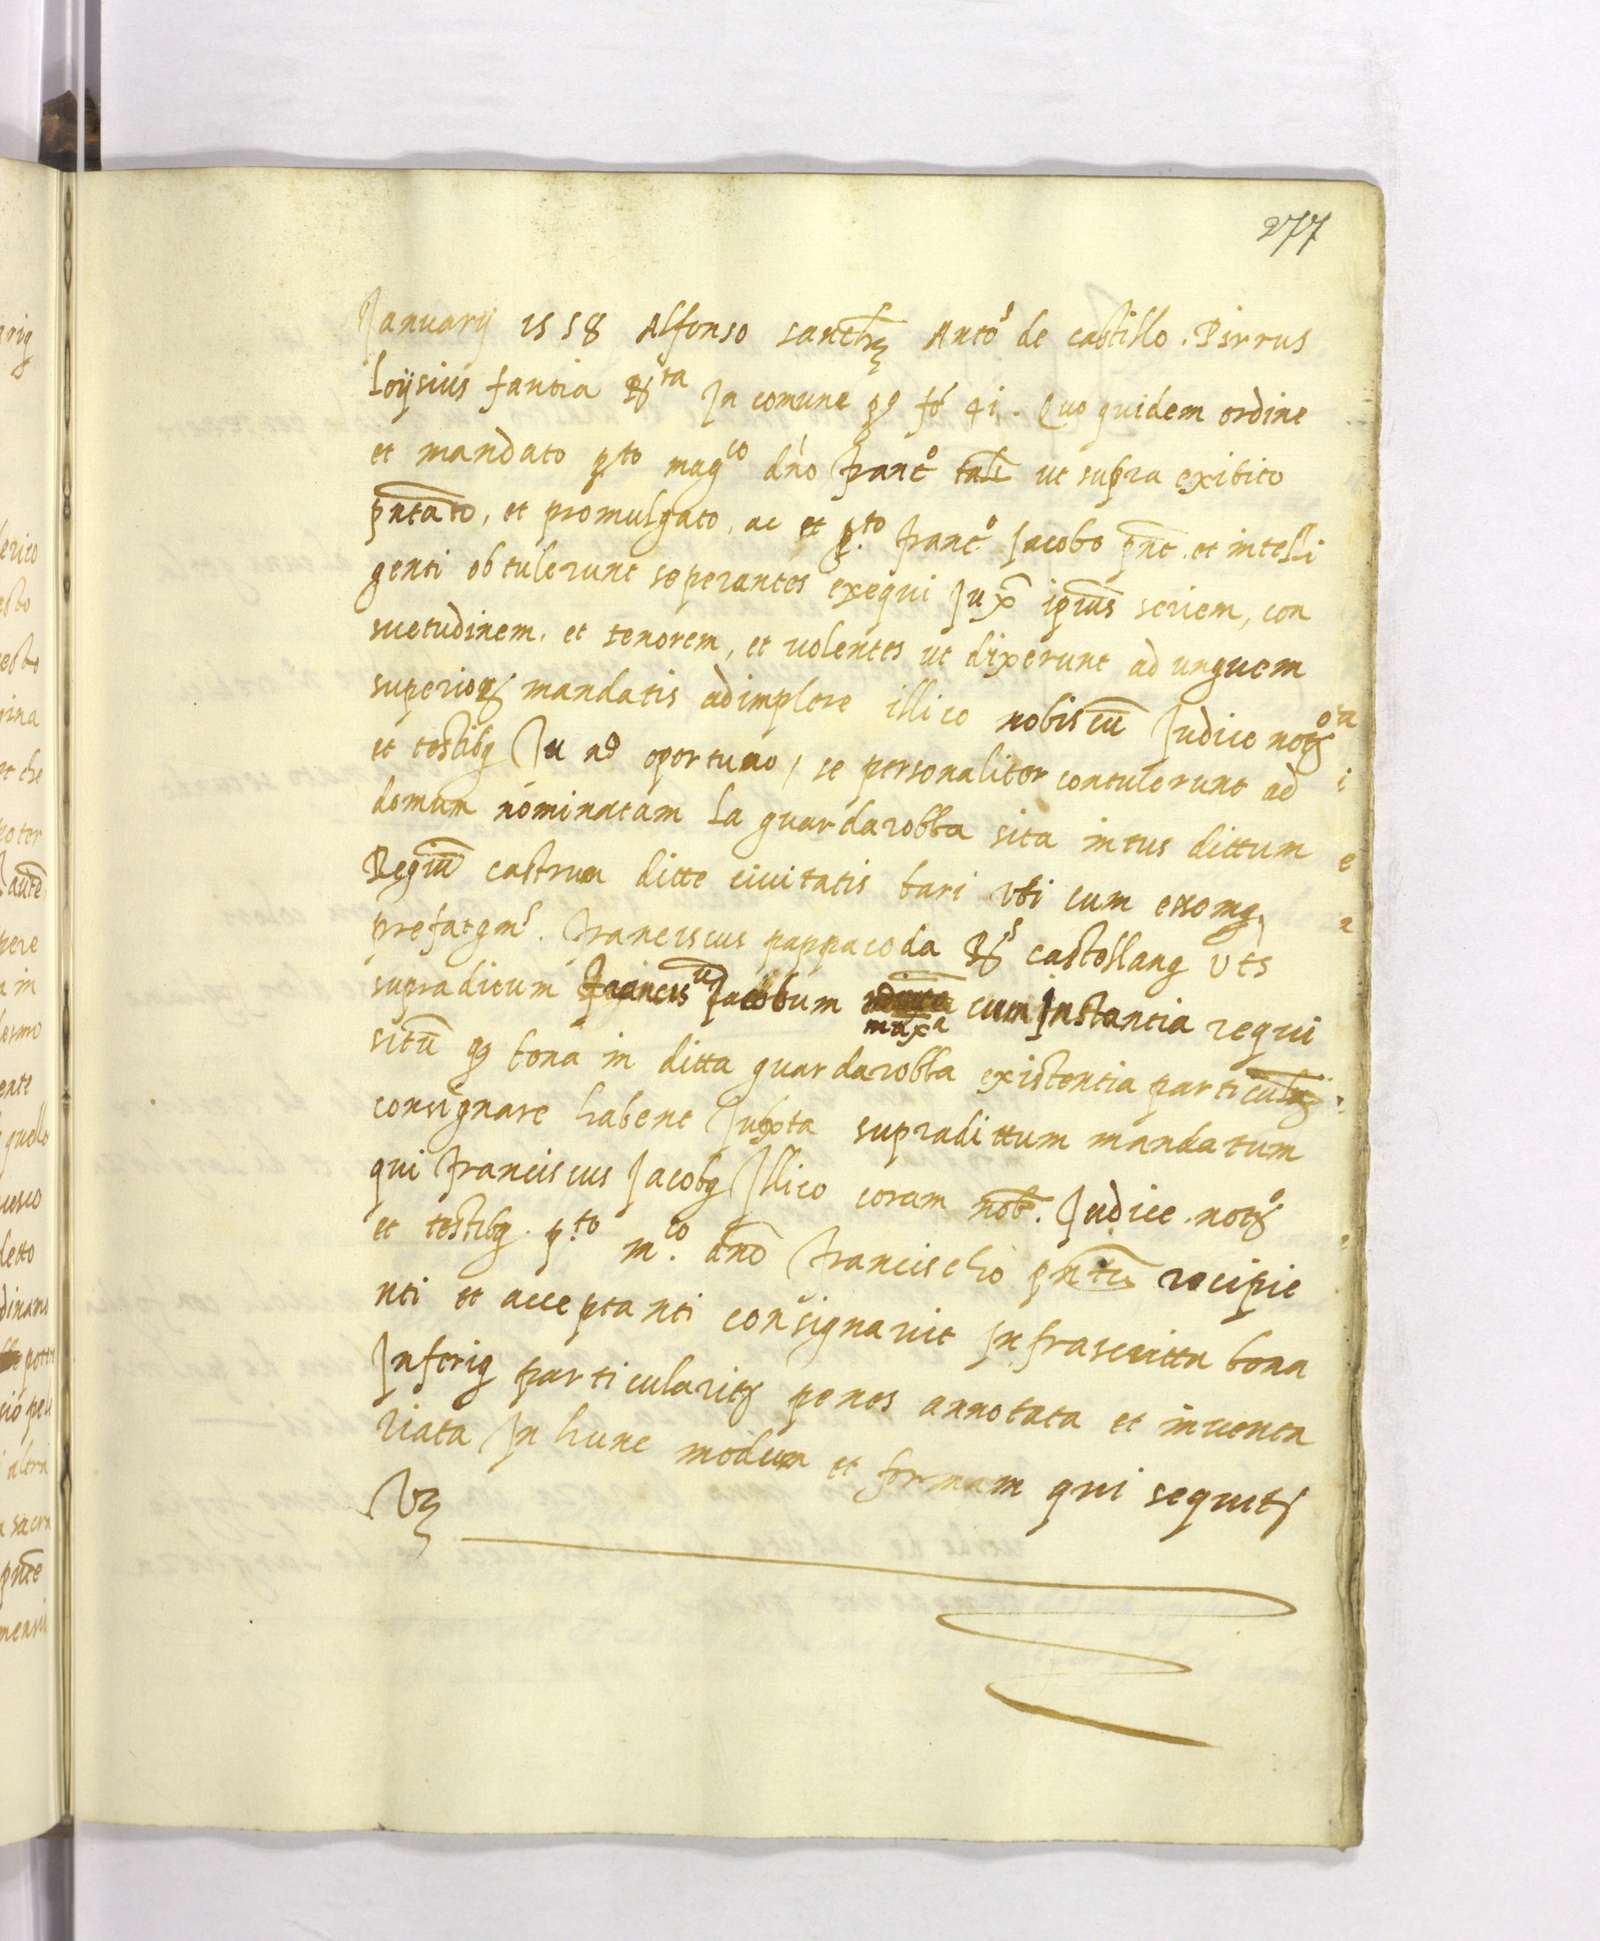 277
Januarij 1558 Alfonso sanchz Anto.s de castillo. Pirrus
Loysius fantia Rta In comune po fo 41. Quo quidem ordine
et mandato pto magco dno franco tali ut supra exibito
pntato, et promulgato, ac et pto franco Jacobo pnt et intelli
genti obtulerunt se perantes exequi Jux ipius seriem, con
suetudinem, et tenorem, et volentes ut dixerunt ad unguem
superior mandatis adimplere illico nobiscu Judice notro
et testibq In no oportuno, se personaliter contulerunt ad
domum nominatam La guardarobba sita intus dittum
Regiu castrum ditte civitatis bari Ubi cum
prefat ms. franciscus pappacoda Rs castellanq Uts
supradictum Jacobum maxa cum Instantia requi
situ q bona in ditta guardarobba existentia particular
consignare habent Juxta supradittum mandatum
qui franciscus Jacobq Illico coram nob. Judice notro
et testibq. pto m.co dno francischo pnti recipie
nti et acceptanti consignavit Infrascritta bona
Inferiq particularitr penes annotata et inventa
riata In hunc modum et formam qui sequitr
Vz